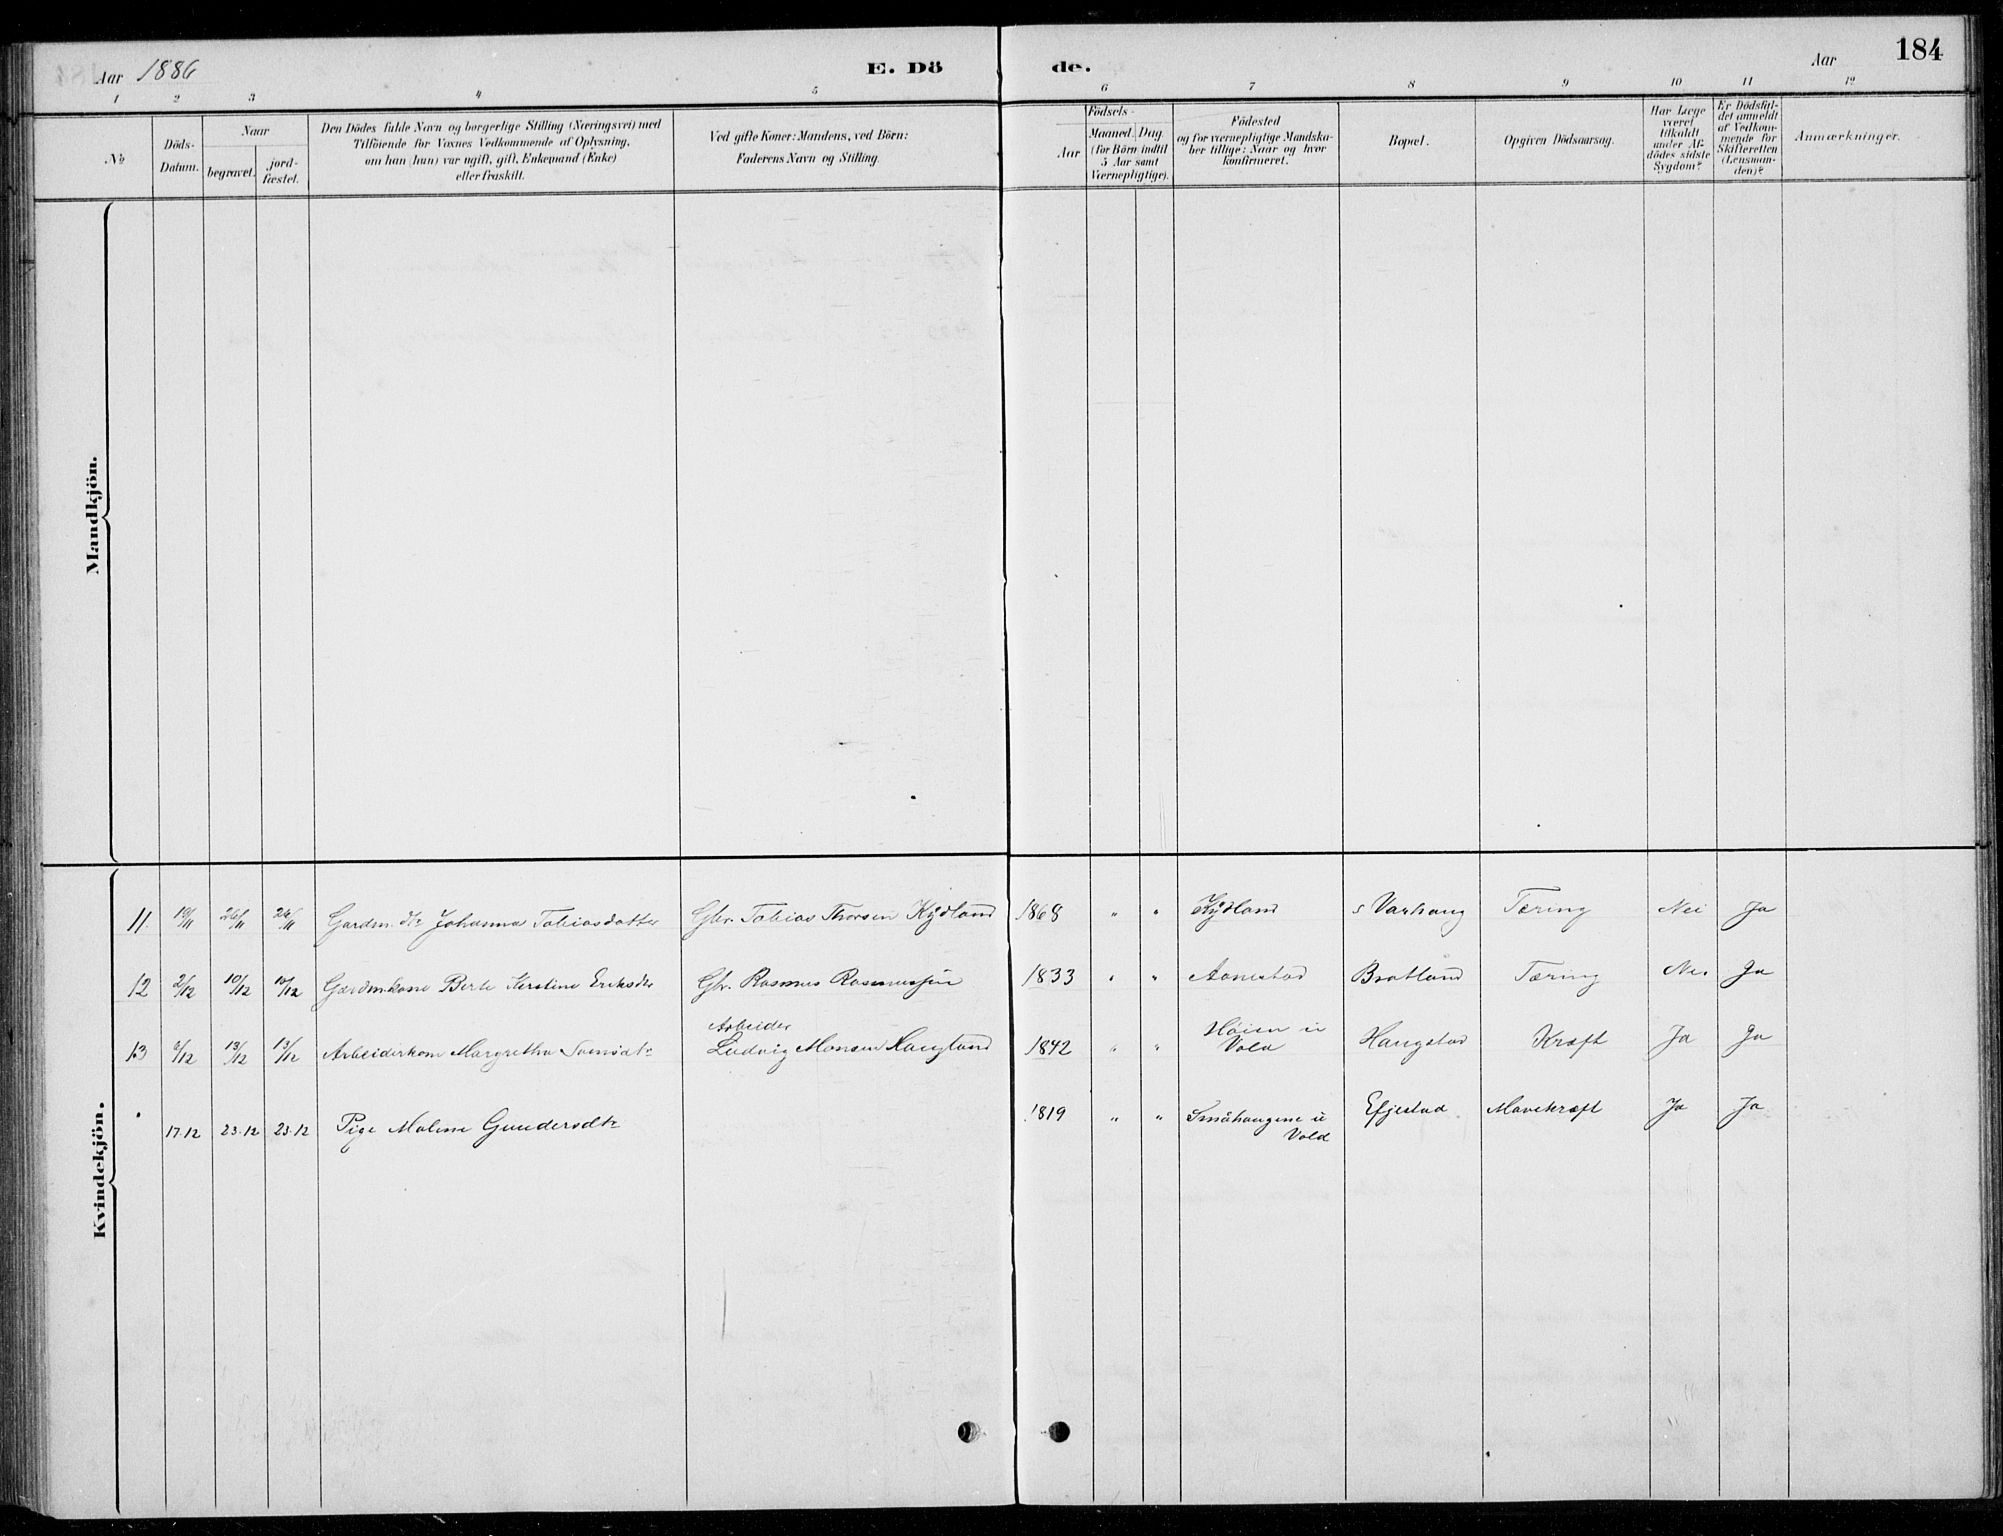 Aar 1886 E. Dö
de. Aar 184
1 2 3 4 5 6 7 8 9 10 11 12
No
Döds-Datum.
Naar
begravet.
jord-fæstet.
Den Dödes fulde Navn og borgerlige Stilling (Næringsvei) med
Tilföiende for Voxnes Vedkommende af Oplysning,
om han (hun) var ugift, gift, Enkemand (Enke)
eller fraskilt.
Ved gifte Koner: Mandens, ved Börn:
Faderens Navn og Stilling.
Födsels-
Aar
Maaned. Dag.
(for Börn indtil
5 Aar samt
Værnepligtige).
Födested
og for værnepligtige Mandska-
ber tillige: Naar og hvor
konfirmeret.
Bopæl.
Opgiven Dödsaarsag.
Har Læge
været
tilkaldt
under Af-
dödes sidste
Sygdom?
Er Dödsfal-
det anmeldt
af Vedkom-
mende for
Skifteretten
(Lensman-
den)?
Anmærkninger.
Mandkjön.
Kvindekjön.
11. 19/11 26/11 26/11 Gardm. dtr Johanna Tobiasdatter Gbr. Tobias Thorsen Kydland 1868 " " Kydland s Varhaug Tæring Nei Ja
12 2/12 10/12 10/12 Gardmkone Berte Kirstine Eriksdtr Gbr. Rasmus Rasmussen 1833 " " Aanestad Bratland Tæring Nei Ja
Arbeider
13 6/12 13/12 13/12 Arbeiderkone Margretha Svensdtr Ludvig Monsen Haugland 1842 " " Høien i Vold Haugstad Kræft Ja Ja
17.12 23.12 23.12 Pige Malene Gundersdtr 1819 " " Småhaugene i Vold Efjestad Mavekræft Ja Ja